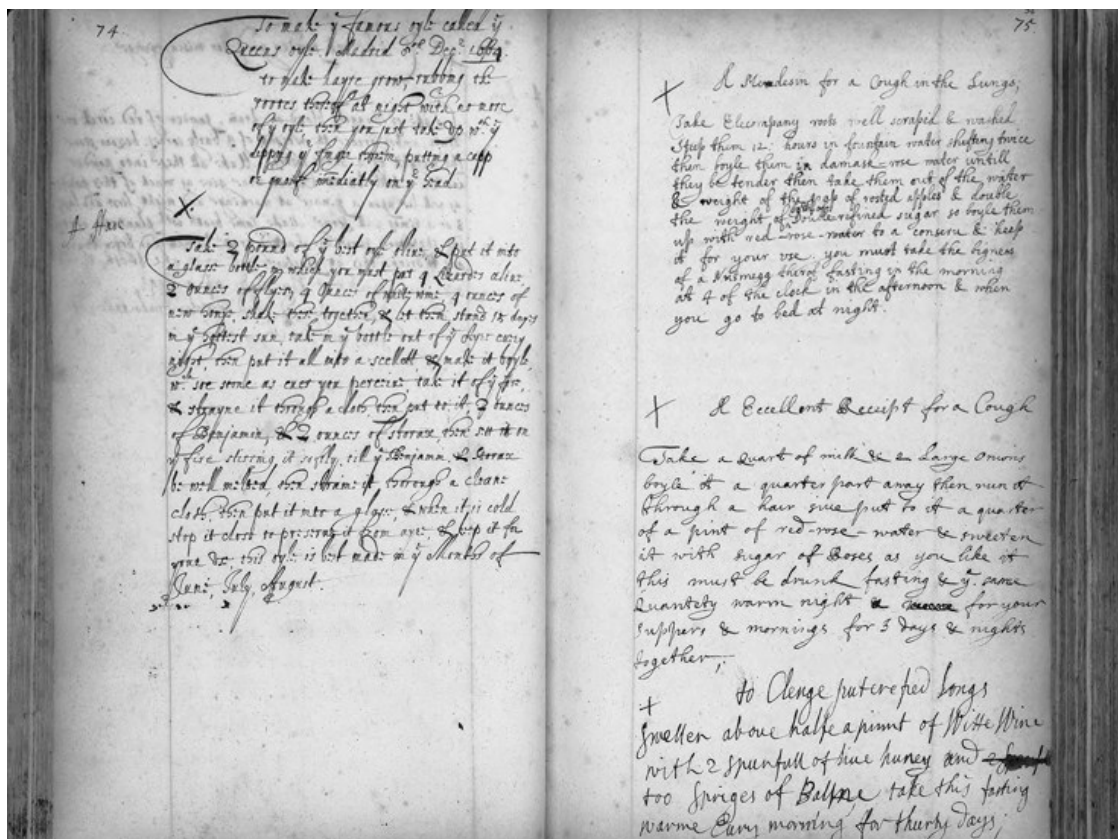 74
To make yͤ famous oyle called yͤ
Queens oyle. Madrid Decʳ 1664.
to make hayre grow, rubbing the
rootes thereof at night with no more
of yͤ oyle, then you just take up wᵗʰ yͤ
dipping yͤ finger therein, putting a capp
immediatly on yͤ head
X.
Take 2 pound of yͤ best oyle olive & put it into
a glasse bottle, in which you must put 4 Lizardes alive
2 ounces of flyes, 4 ounces of white wine 4 ounces of
new honye, shake them together, & let them stand 15 dayes
in yͤ hottest sun, take in yͤ bottle out of yͤ ayre every
night, then put it all into a scellett & make it boyle,
wᶜʰ soe soone as ever you perceive take it of yͤ fire,
& strayne it through a cloth then put to it, 2 ounces
of Benjamin, & 2 ounces of storax then sett it on
yͤ fire stirring it softly, till yͤ Benjamin, & Storax
be well melted, then straine it thorough a cleane
cloth, then put it into a glasse, & when it is cold
stop it close to preserve it from ayre, & keep it for
your use. this oyle is best made in yͤ Months of
June, July, August.
75
X A Medesin for a Cough in the Lungs;
Take Elecampany roots well scraped & washed
Steep them 12; hours in fountain water shifting twice
then boyle them in damask-rose water untill
they be tender then take them out of the water
& weight of the pap of rosted apples & double
the weight of double refined sugar so boyle them
up with red-rose-water to a conserv & keep
it for your use. you must take the bignes
of a Nutmegg therof fasting in the morning
at 4 of the clock in the afternoon & when
you go to bed at night.
X A Eccellent Receipt for a Cough
Take a quart of milk & 2 Large onions
boyle it a quarter part away then run it
through a hair sive put to it a quarter
of a pint of red-rose-water & sweeten
it with sugar of Roses as you like it
this must be drunk fasting & yͤ same
Quantety warm night & for your
suppers & mornings for 3 days & nights
together;
+ to Clenge putrefied Longs
Swetten above halfe a pinnt of Witte Wine
with 2 spunfull of live huney and
too spriges of Balme take this fasting
warme Every morning for thurty days.